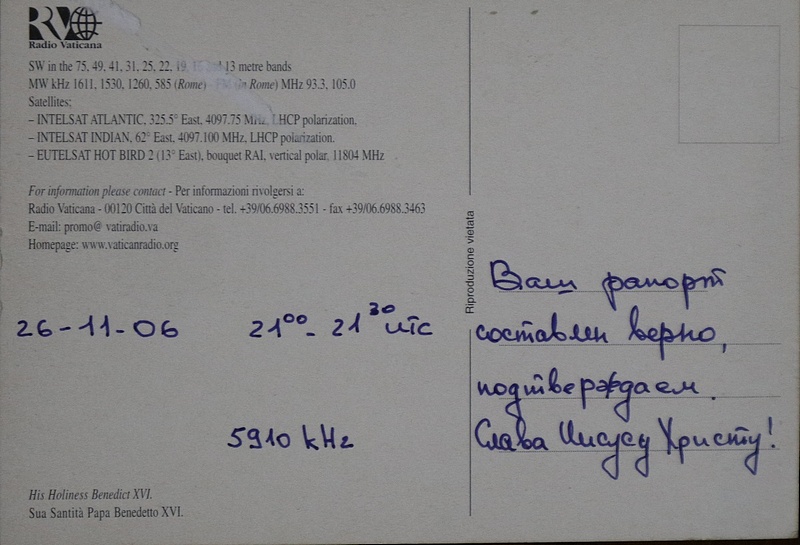 RV
Radio Vaticana
SW in the 75, 49, 41, 31, 25, 22, 19, 13 metre bands
MW kHz 1611, 1530, 1260, 585 (Rome) - FM (in Rome) MHz 93.3, 105.0
Satellites:
– INTELSAT ATLANTIC, 325.5° East, 4097.75 MHz, LHCP polarization,
– INTELSAT INDIAN, 62° East, 4097.100 MHz, LHCP polarization.
– EUTELSAT HOT BIRD 2 (13° East), bouquet RAI, vertical polar, 11804 MHz
For information please contact - Per informazioni rivolgersi a:
Radio Vaticana - 00120 Città del Vaticano - tel. +39/06.6988.3551 - fax +39/06.6988.3463
E-mail: promo@ vatiradio.va
Homepage: www.vaticanradio.org
26-11-06 21⁰⁰ - 21³⁰ UTC
5910 kHz
His Holiness Benedict XVI.
Sua Santità Papa Benedetto XVI.
Riproduzione vietata
Ваш рапорт
составлен верно,
подтверждаем.
Слава Иисусу Христу!